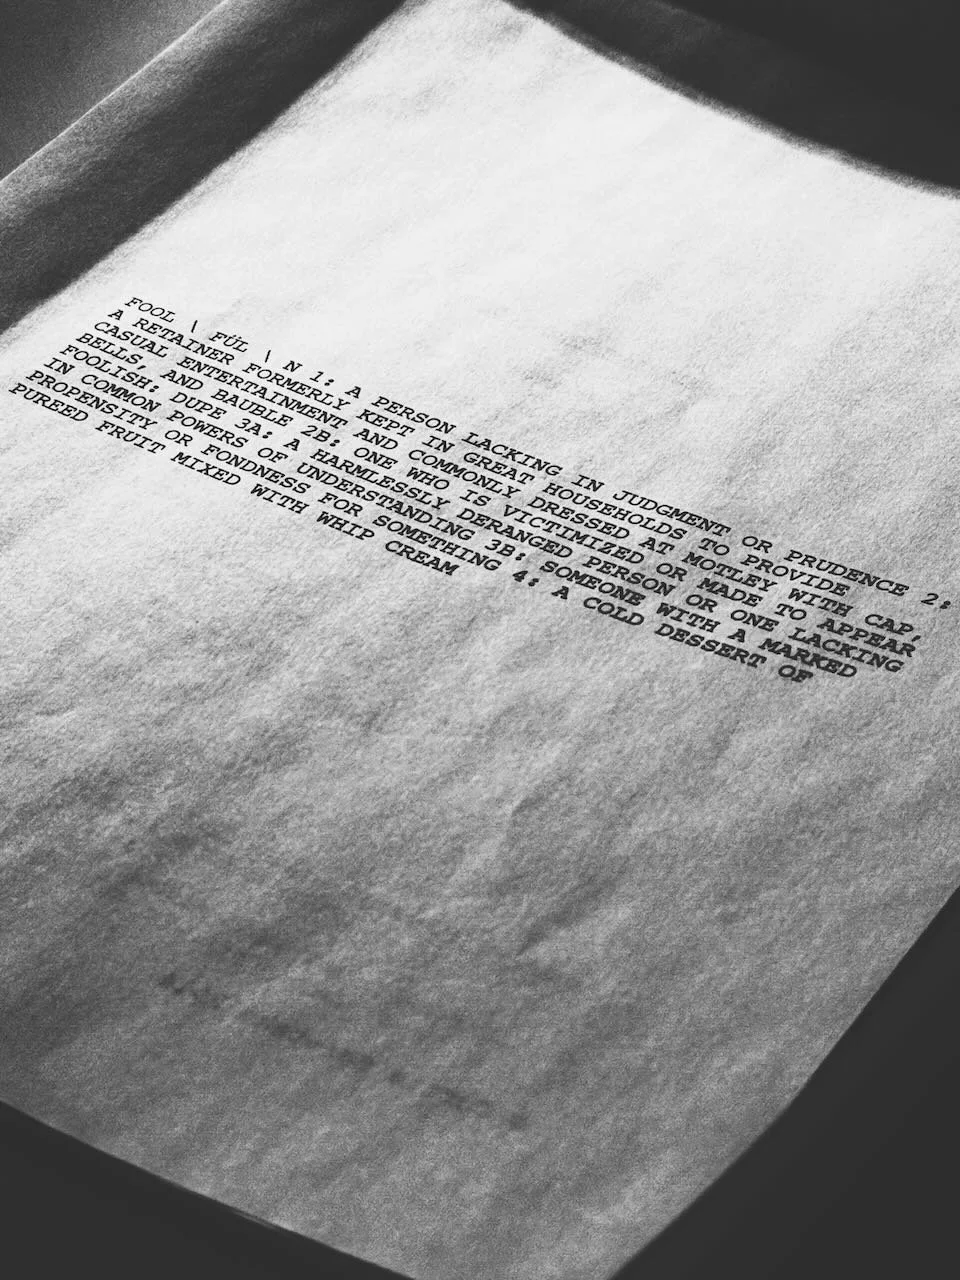 FOOL \ FÚL \ N 1: A PERSON LACKING IN JUDGMENT OR PRUDENCE 2:
A RETAINER FORMERLY KEPT IN GREAT HOUSEHOLDS TO PROVIDE
CASUAL ENTERTAINMENT AND COMMONLY DRESSED AT MOTLEY WITH CAP,
BELLS, AND BAUBLE 2B: ONE WHO IS VICTIMIZED OR MADE TO APPEAR
FOOLISH: DUPE 3A: A HARMLESSLY DERANGED PERSON OR ONE LACKING
IN COMMON POWERS OF UNDERSTANDING 3B: SOMEONE WITH A MARKED
PROPENSITY OR FONDNESS FOR SOMETHING 4: A COLD DESSERT OF
PUREED FRUIT MIXED WITH WHIP CREAM